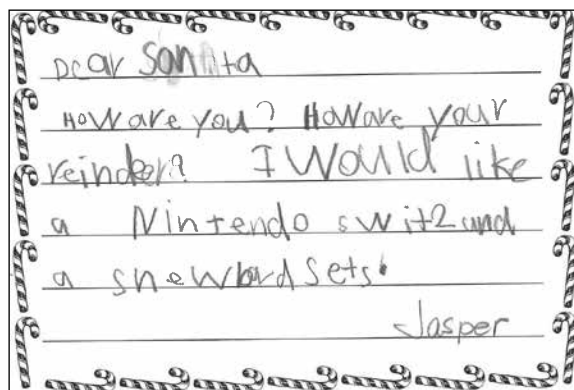 Dear Santa
How are you? How are your
reinder? I Would like
a Nintendo swit2 and
a snewbord sets.
Jasper